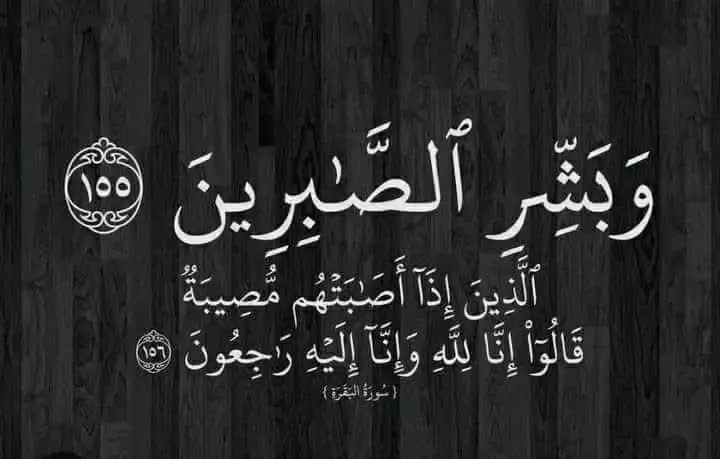 وَبَشِّرِ ٱلصَّٰبِرِينَ ١٥٥
ٱلَّذِينَ إِذَآ أَصَٰبَتۡهُم مُّصِيبَةٞ
قَالُوٓاْ إِنَّا لِلَّهِ وَإِنَّآ إِلَيۡهِ رَٰجِعُونَ ١٥٦
{ سُورَةُ البَقَرَةِ }